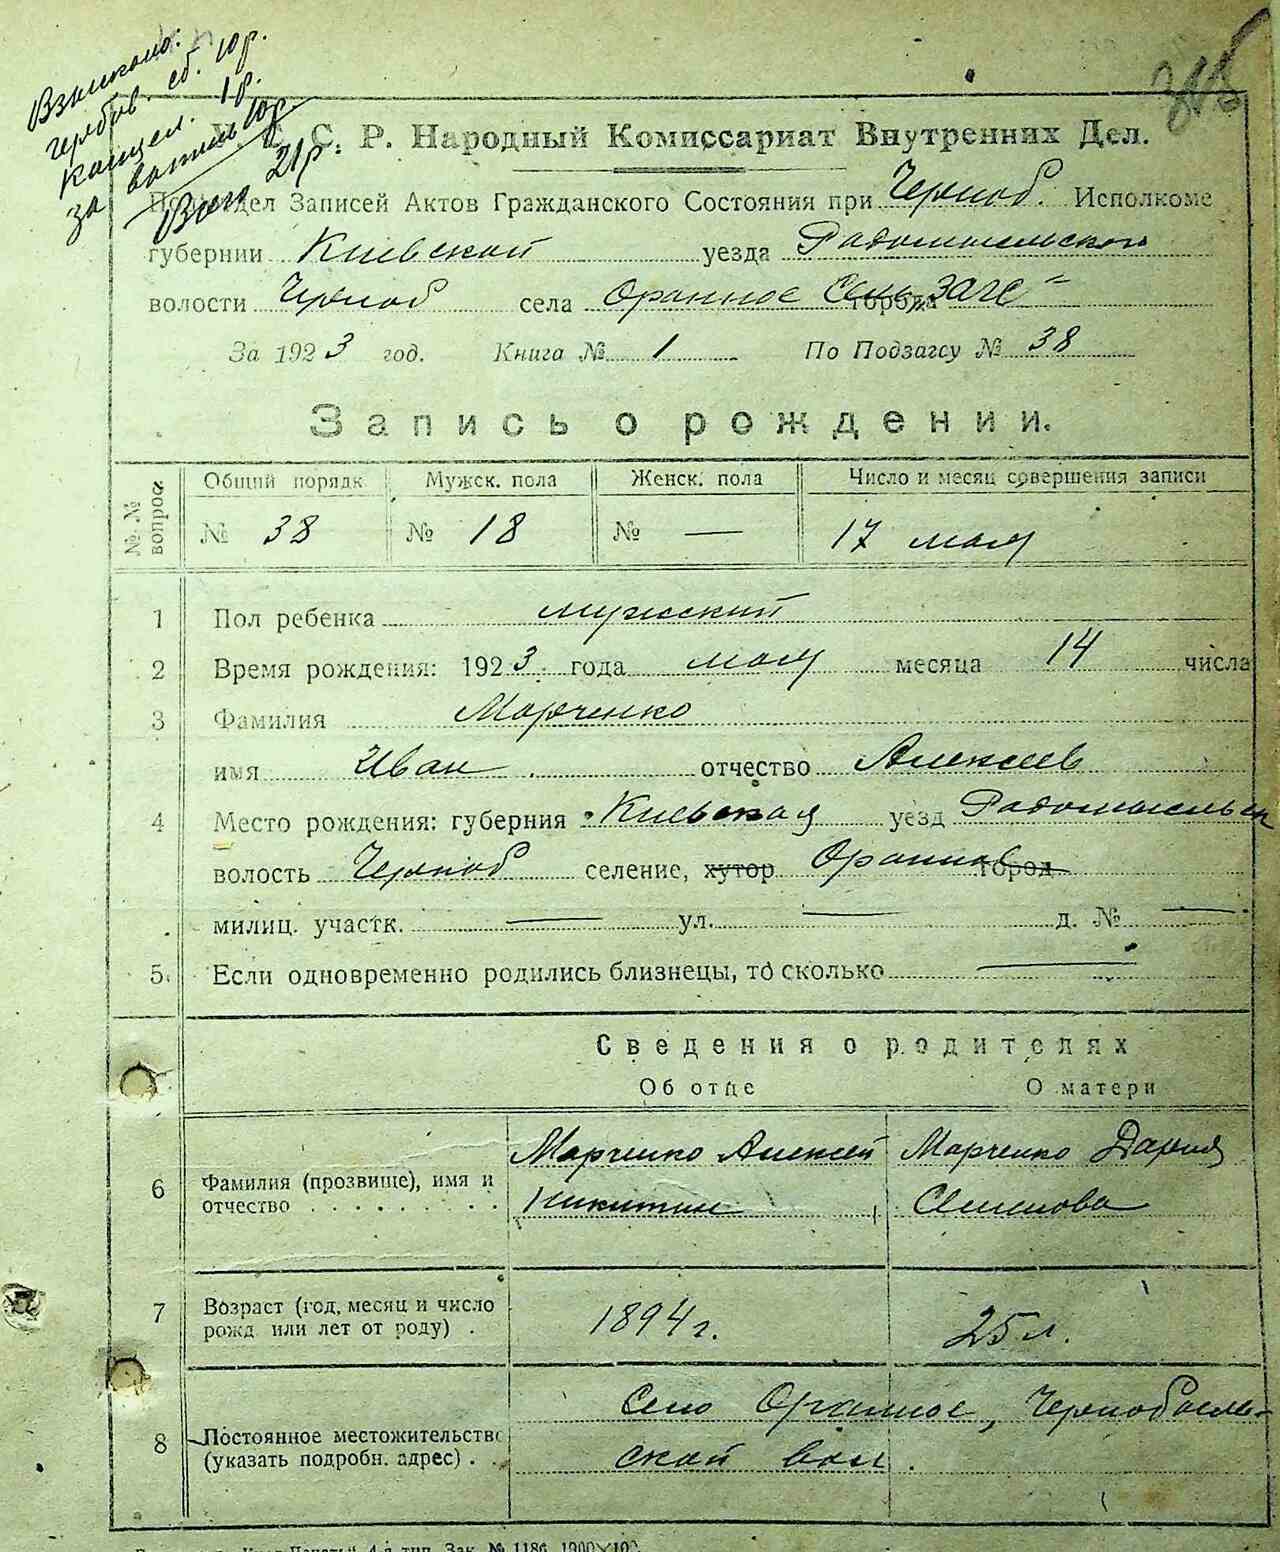 Взыскано:
гербов. сб. 10 р.
канцел. 1 р.
за 10 р.
Всего 21 р
У. С. С. Р. Народный Комиссариат Внутренних Дел.
Подотдел Записей Актов Гражданского Состояния при Черноб. Исполкоме
губернии Киевской уезда Радомысльского
волости Черноб села Оранное города Сель-ЗАГС
За 1923 год. Книга № 1 По Подзагсу № 38
Запись о рождении.
№№ вопроса
Общий порядк. Мужск. пола Женск. пола Число и месяц совершения записи
№ 38 № 18 № — 17 мая
1 Пол ребенка мужской
2 Время рождения: 1923 года мая месяца 14 числа
3 Фамилия Марченко
имя Иван отчество Алексеев
4 Место рождения: губерния Киевская уезд Радомысльск
волость Черноб селение, хутор Оранное город
милиц. участк. — ул. — д. № —
5. Если одновременно родились близнецы, то сколько —
Сведения о родителях
Об отце О матери
6 Фамилия (прозвище), имя и отчество . . . . . . . . .
Марченко Алексей Никитин
Марченко Дария Семенова
7 Возраст (год, месяц и число рожд или лет от роду) .
1894 г. 25 л.
8 Постоянное местожительство (указать подробн. адрес) . .
Село Оранное, Чернобыль-
ской вол.
4-я тип. Зак. № 1186